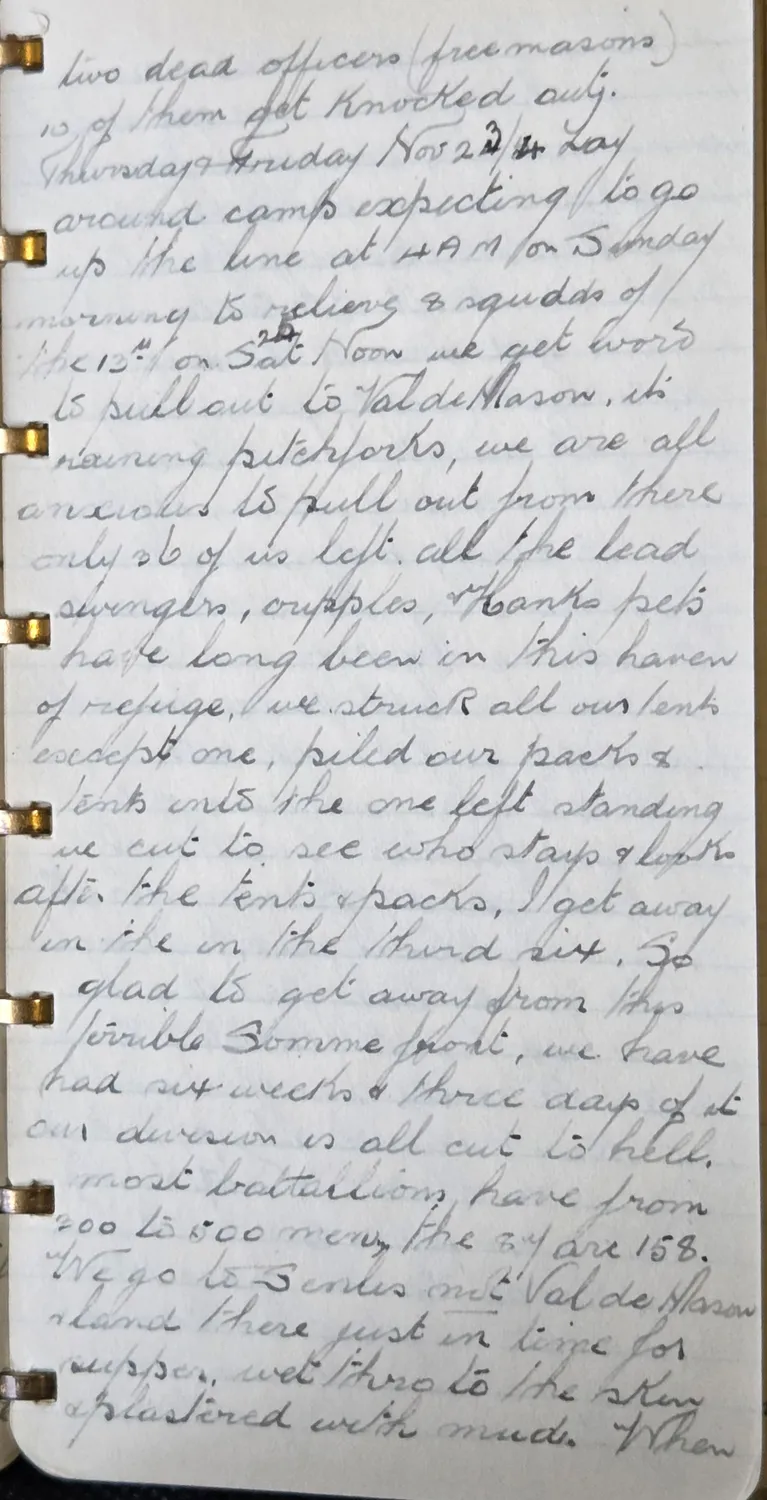 two dead officers (freemasons)
10 of them get knocked out.
Thursday & Friday Nov 23/4 Lay
around camp expecting to go
up the line at 4 AM on Sunday
morning to relieve 8 squdds of
the 13th on Sat 25 Noon we get word
to pull out to Val de Mason, its
raining pitchforks, we are all
anxious to pull out from there
only 36 of us left. all the lead
swingers, cripples, & Hanks pets
have long been in this haven
of refuge, we struck all our tents
except one, piled our packs &
tents into the one left standing
we cut to see who stays & looks
after the tents & packs, I get away
in the in the third six. So
glad to get away from this
terrible Somme front, we have
had six weeks & three days of it
our division is all cut to hell.
most battallions have from
300 to 500 men, the 87 are 158.
We go to Senlis not Val de Mason
& land there just in time for
supper, wet thro to the skin
& plastered with mud. When